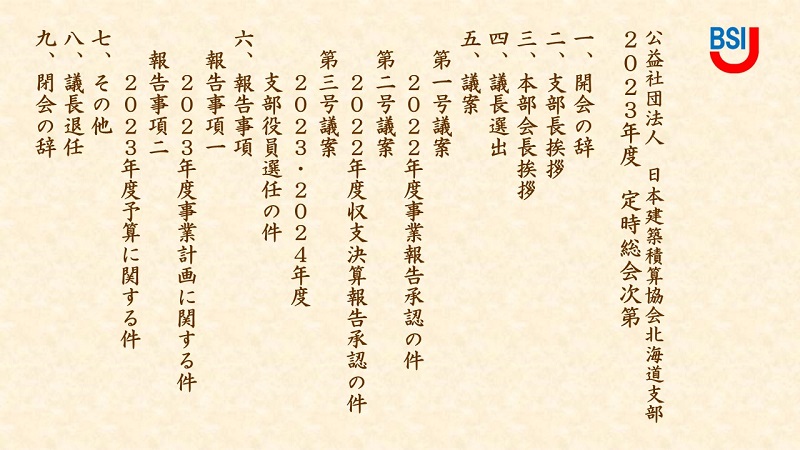 BSIJ
公益社団法人 日本建築積算協会北海道支部
2023年度 定時総会次第
一、開会の辞
二、支部長挨拶
三、本部会長挨拶
四、議長選出
五、議案
第一号議案
2022年度事業報告承認の件
第二号議案
2022年度収支決算報告承認の件
第三号議案
2023・2024年度
支部役員選任の件
六、報告事項
報告事項一
2023年度事業計画に関する件
報告事項二
2023年度予算に関する件
七、その他
八、議長退任
九、閉会の辞